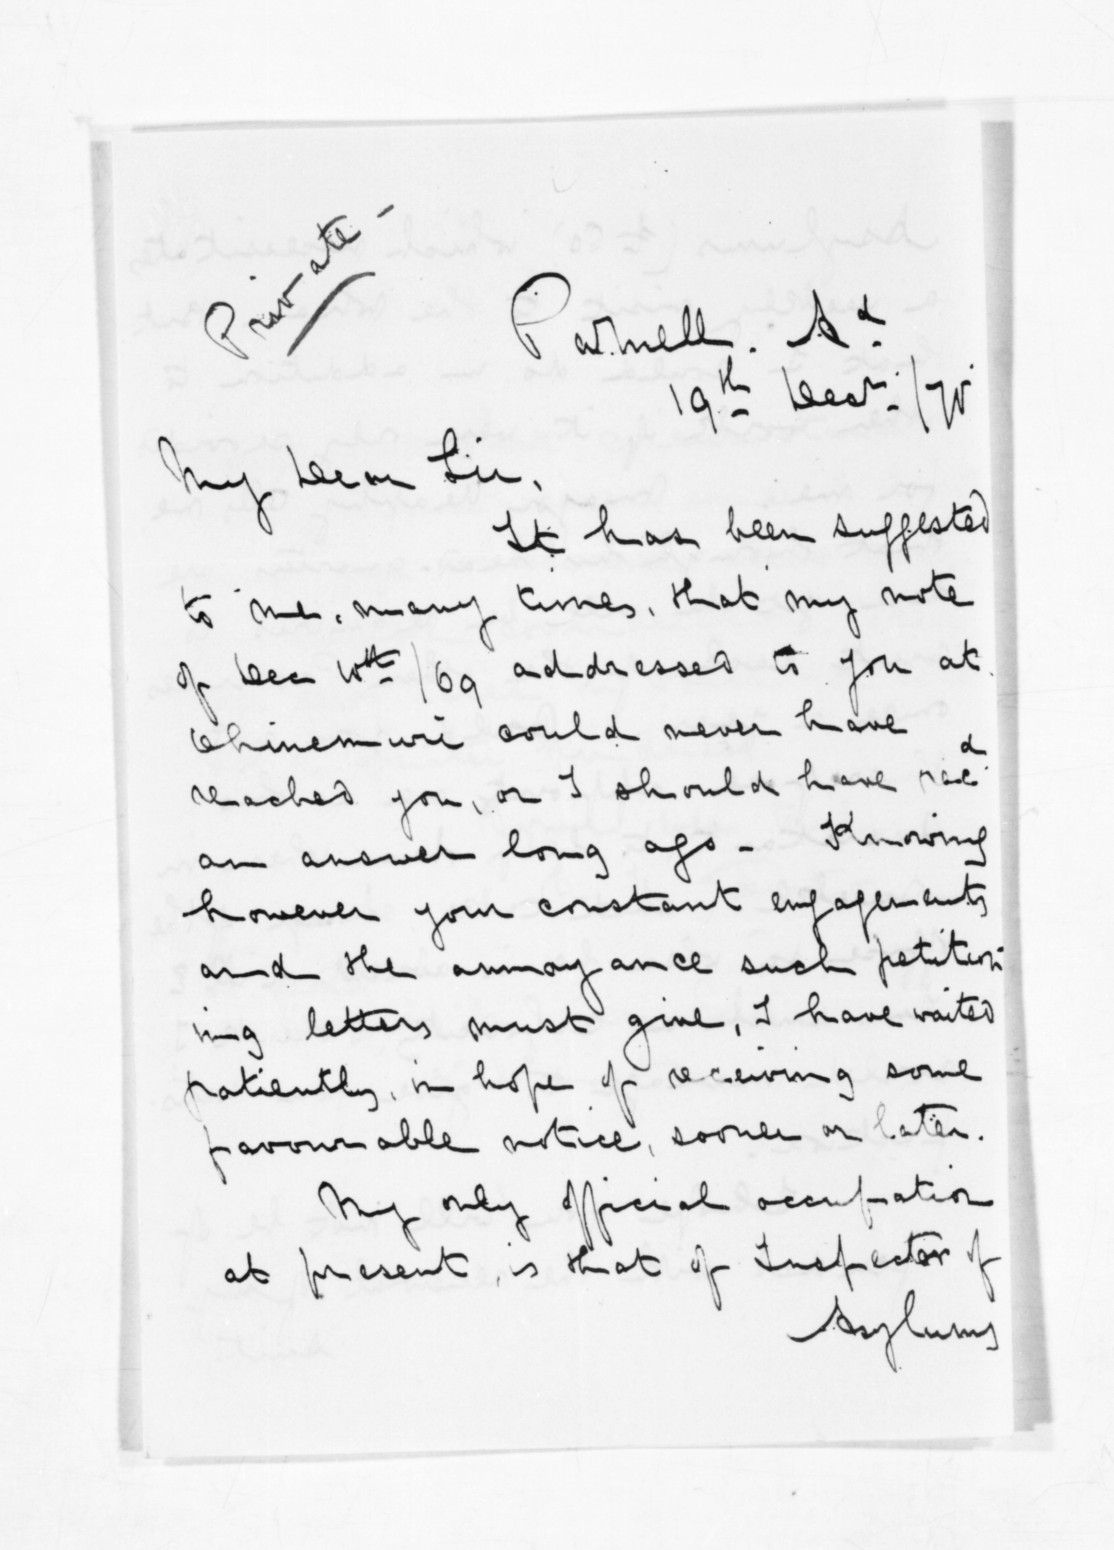 Private -
Parnell. Ad.
19th Decr. /70
My Dear Sir,
It has been suggested
to me, many times, that my note
of Dec 10th /69 addressed to you at
Ohinemuri could never have
reached you, or I should have recd.
an answer long ago - Knowing
however your constant engagements
and the annoyance such petition-
ing letters must give, I have waited
patiently, in hope of receiving some
favourable notice, sooner or later.
My only official occupation
at present, is that of Inspector of
Asylums